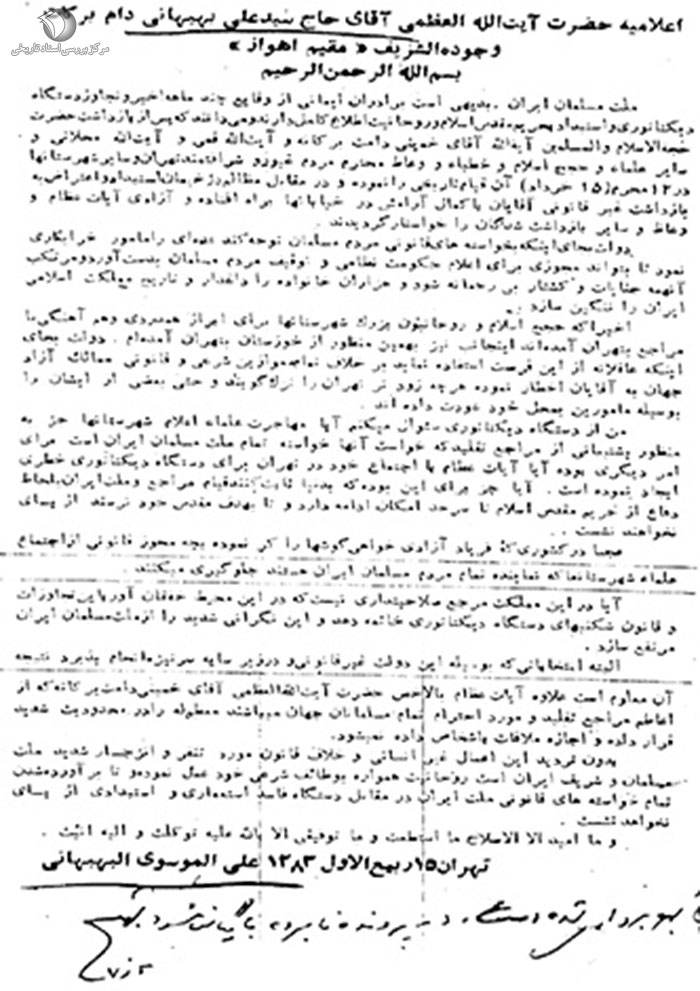 مرکز بررسی اسناد تاریخی
اعلامیه حضرت آیت‌الله العظمی آقای حاج سیدعلی بهبهانی دام برکاته
وجوده‌الشریف « مقیم اهواز »
بسم‌الله الرحمن الرحیم
ملت مسلمان ایران . بدیهی است برادران ایمانی از وقایع چند ماهه اخیر و تجاوز دستگاه
دیکتاتوری و استبداد بحریم مقدس اسلام و روحانیت اطلاع کامل دارند و می‌دانند که پس از بازداشت حضرت
حجه‌الاسلام والمسلمین آیةالله آقای خمینی دامت برکاته و آیت‌الله قمی و آیت‌الله محلاتی و
سایر علماء و حجج اسلام و خطباء و وعاظ محترم مردم غیور و شرافتمند تهران و سایر شهرستانها
در ۱۲ محرم (۱۵ خرداد) آن قیام تاریخی را نموده و در مقابل مظالم دژخیمان استبداد و اعتراض به
بازداشت غیر قانونی آقایان باکمال آرامش در خیابانها براه افتاده و آزادی آیات عظام و
وعاظ و سایر بازداشت شدگان را خواستار گردیدند .
دولت بجای اینکه بخواسته های قانونی مردم مسلمان توجه کند عده‌ای را مامور خرابکاری
نمود تا بتواند مجوزی برای اعلام حکومت نظامی و توقیف مردم مسلمان بدست آورد و مرتکب
آنهمه جنایات و کشتار بی رحمانه شود و هزاران خانواده را داغدار و تاریخ مملکت اسلامی
ایران را ننگین سازد .
اخیرا که حجج اسلام و روحانیون بزرگ شهرستانها برای ابراز همدردی وهم آهنگی با
مراجع بتهران آمده‌اند اینجانب نیز بهمین منظور از خوزستان بتهران آمده‌ام . دولت بجای
اینکه عاقلانه از این فرصت استفاده نماید بر خلاف تمام موازین شرعی و قانونی ممالک آزاد
جهان به آقایان اخطار نموده هرچه زود تر تهران را ترک گویند و حتی بعضی از ایشان را
بوسیله مامورین بمحل خود عودت داده اند .
من از دستگاه دیکتاتوری سئوال میکنم آیا مهاجرت علماء اعلام شهرستانها جز به
منظور پشتیبانی از مراجع تقلید که خواست آنها خواسته تمام ملت مسلمان ایران است برای
امر دیگری بوده آیا آیات عظام با اجتماع خود در تهران برای دستگاه دیکتاتوری خطری
ایجاد نموده است . آیا جز برای این بوده که بدنیا ثابت کنند قیام مراجع و ملت ایران بلحاظ
دفاع از حریم مقدس اسلام تا سرحد امکان ادامه دارد و تا بهدف مقدس خود نرسند از پای
نخواهند نشست .
عجبا در کشوری که فریاد آزادی خواهی گوشها را کر نموده بچه مجوز قانونی از اجتماع
علماء شهرستانها که نماینده تمام مردم مسلمان ایران هستند جلوگیری میکنند .
آیا در این مملکت مرجع صلاحیتداری نیست که در این محیط خفقان آور باین تجاوزات
و قانون شکنیهای دستگاه دیکتاتوری خاتمه دهد و این نگرانی شدید را از ملت مسلمان ایران
مرتفع سازد .
البته انتخاباتی که بوسیله این دولت غیرقانونی و درزیر سایه سرنیزه انجام پذیرد نتیجه
آن معلوم است علاوه آیات عظام بالاخص حضرت آیت‌الله‌العظمی آقای خمینی دامت برکاته که از
اعاظم مراجع تقلید و مورد احترام تمام مسلمانان جهان میباشند معظم‌له را در محدودیت شدید
قرار داده و اجازه ملاقات باشخاص داده نمیشود.
بدون تردید این اعمال غیر انسانی و خلاف قانون مورد تنفر و انزجار شدید ملت
مسلمان و شریف ایران است روحانیت همواره بوظائف شرعی خود عمل نموده و تا برآورده شدن
تمام خواسته های قانونی ملت ایران در مقابل دستگاه فاسد استعماری و استبدادی از پای
نخواهد نشست .
و ما ارید الا الاصلاح ما استطعت و ما توفیقی الا بالله علیه توکلت و الیه انیب .
تهران ۱۵ ربیع الاول ۱۳۸۳ علی الموسوی البهبهانی
بهره برداری شده است. در پرونده نامبرده بایگانی شود